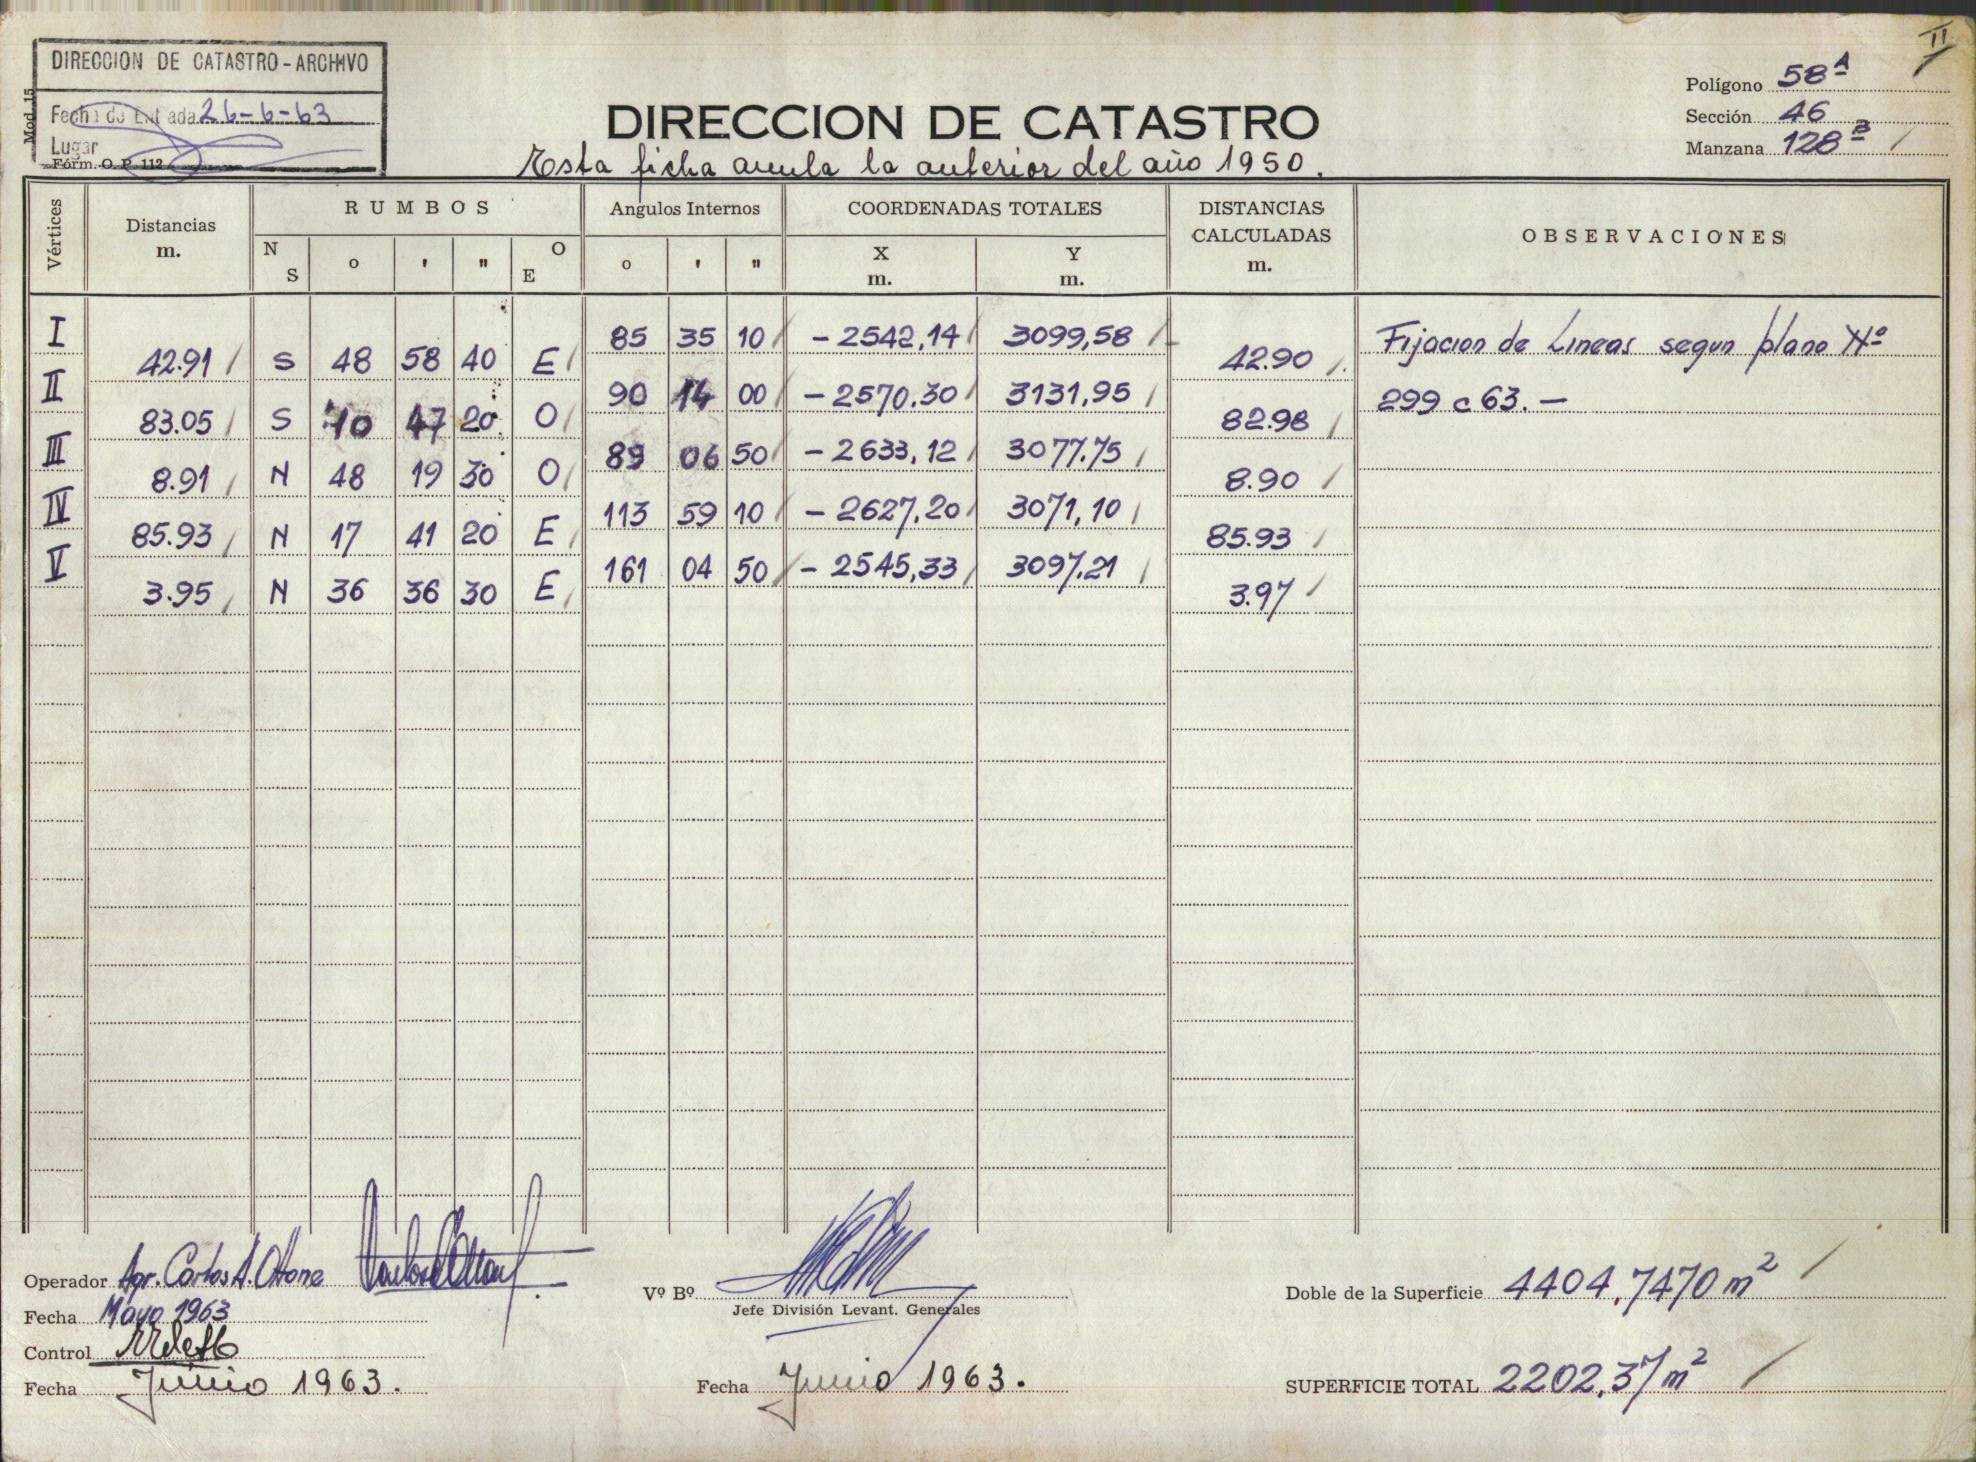 II
DIRECCION DE CATASTRO - ARCHIVO
Fecha de Entrada 26-6-63
Lugar
Mod. 15
Fórm. O. P. 112
Polígono 58ª
Sección 46
Manzana 128B
DIRECCION DE CATASTRO
Esta ficha anula la anterior del año 1950.
Vértices Distancias m. RUMBOS N S o ' " O E Angulos Internos o ' " COORDENADAS TOTALES X m. Y m. DISTANCIAS CALCULADAS m. OBSERVACIONES
I 85 35 10 - 2542,14 3099,58 Fijacion de Lineas segun plano Nº
42.91 S 48 58 40 E 42.90
II 90 14 00 - 2570.30 3131,95 299 c 63. -
83.05 S 40 47 20 O 82.98
III 89 06 50 - 2633,12 3077.75
8.91 N 48 19 30 O 8.90
IV 113 59 10 - 2627,20 3071,10
85.93 N 17 41 20 E 85.93
V 161 04 50 - 2545,33 3097.21
3.95 N 36 36 30 E 3.97
Operador Agr. Carlos A. Ottone
Fecha Mayo 1963
Control
Fecha Junio 1963.
Vº Bº
Jefe División Levant. Generales
Fecha Junio 1963.
Doble de la Superficie 4404,7470 m²
SUPERFICIE TOTAL 2202,37 m²